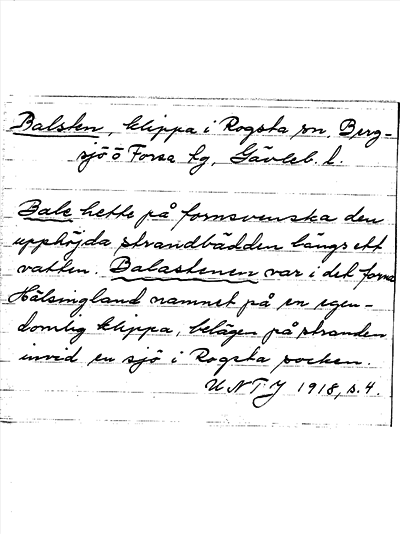 Balsten, klippa i Rogsta sn, Berg-
sjö ö Forsa tg, Gävleb. l.
Bale hette på fornsvenska den
upphöjda strandbädden längs ett
vatten. Balastenen var i det forna
Hälsingland namnet på en egen-
domlig klippa, belägen på stranden
invid en sjö i Rogsta socken.
UNTJ 1918, s. 4.